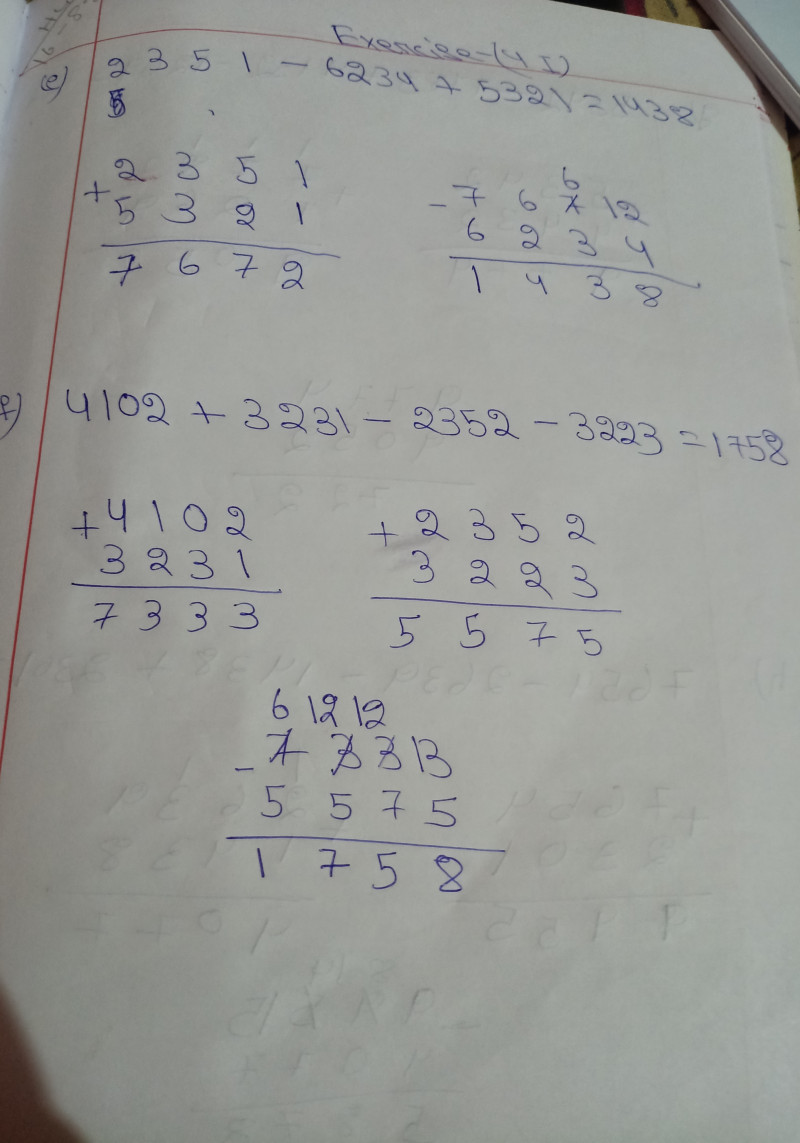 Exercise-(4 I)
e) 2 3 5 1 - 6234 + 5321 = 1438
+ 2 3 5 1
5 3 2 1
7 6 7 2
6
- 7 6 7 12
6 2 3 4
1 4 3 8
f) 4102 + 3231 - 2352 - 3223 = 1758
+ 4 1 0 2
3 2 3 1
7 3 3 3
+ 2 3 5 2
3 2 2 3
5 5 7 5
6 12 12
- 7 3 3 13
5 5 7 5
1 7 5 8